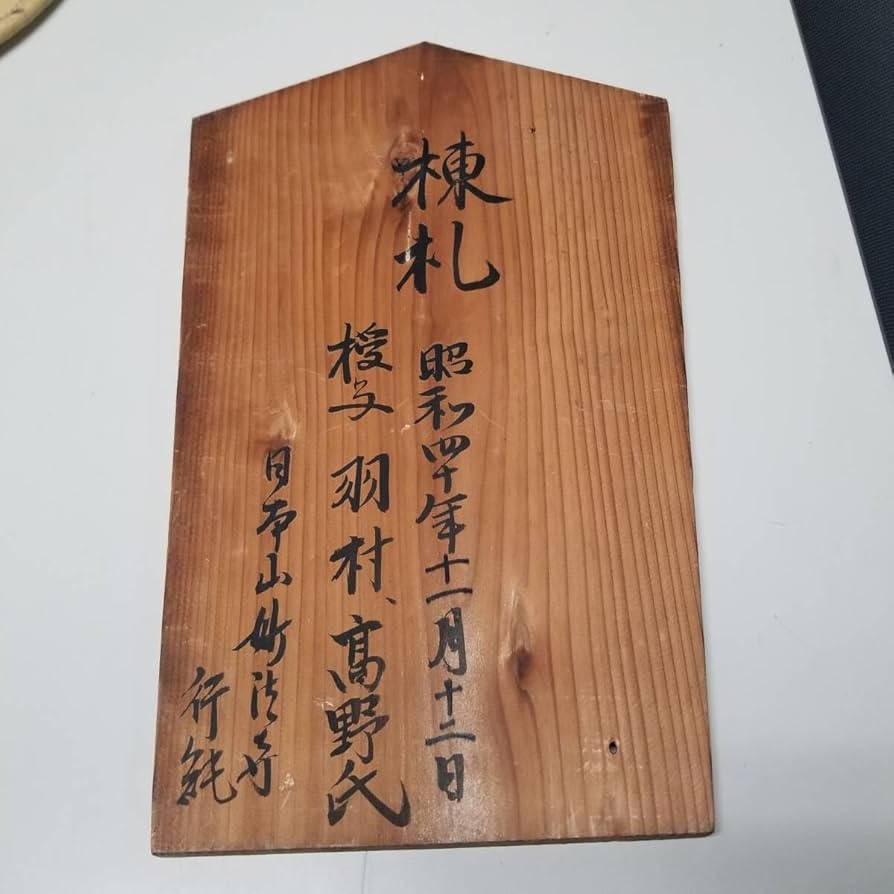 棟札
昭和四十年十一月十二日
授与 羽村、高野氏
日本山妙法寺
行